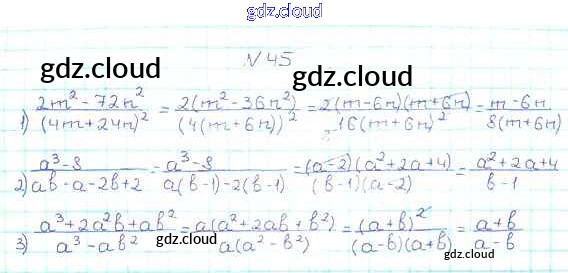 gdz.cloud
N 45
gdz.cloud gdz.cloud
1) (2m² - 72n²)/(4m+24n)² = 2(m² - 36n²)/(4(m+6n))² = 2(m-6n)(m+6n)/16(m+6n)² = (m-6n)/8(m+6n)
gdz.cloud gdz.cloud
2) (a³-8)/(ab-a-2b+2) = (a³-8)/(a(b-1)-2(b-1)) = (a-2)(a²+2a+4)/(b-1)(a-2) = (a²+2a+4)/(b-1)
3) (a³+2a²b+ab²)/(a³-ab²) = a(a²+2ab+b²)/a(a²-b²) = (a+b)²/(a-b)(a+b) = (a+b)/(a-b)
gdz.cloud gdz.cloud